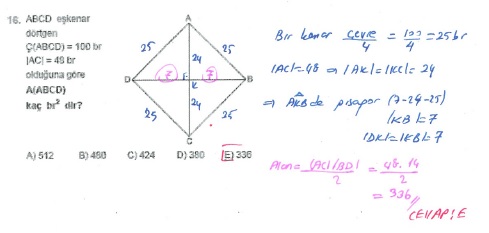 16. ABCD eşkenar
dörtgen
Ç(ABCD) = 100 br
|AC| = 48 br
olduğuna göre
A(ABCD)
kaç br² dir?
A
25
25
24
D
7
7
B
K
24
25
25
C
A) 512 B) 480 C) 424 D) 380 E) 336
Bir kenar çevre/4 = 100/4 = 25 br
|AC| = 48 ⇒ |AK| = |KC| = 24
⇒ AKB de pisagor (7-24-25)
|KB| = 7
|DK| = |KB| = 7
Alan = |AC||BD|/2 = 48.14/2
= 336
CEVAP: E